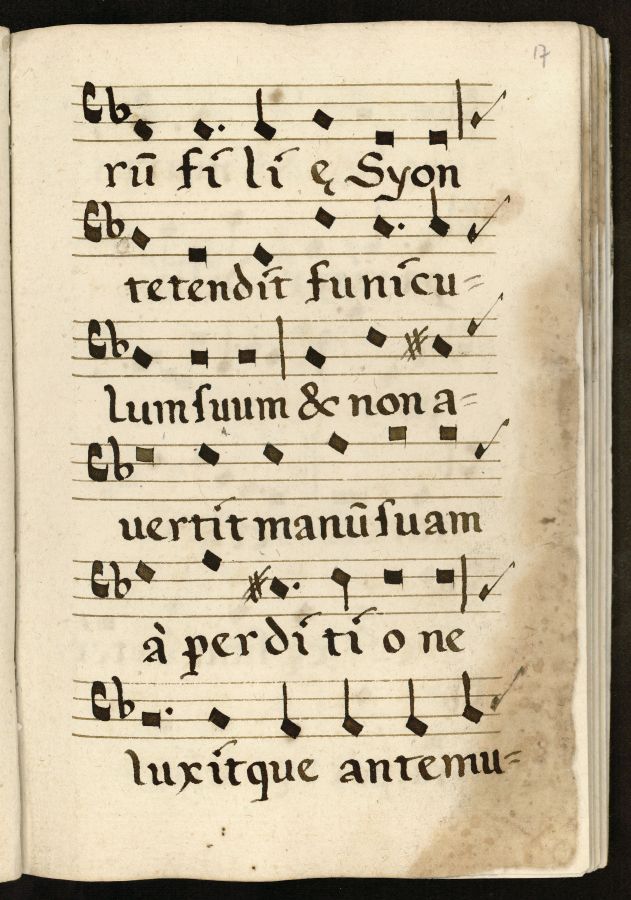 17
rū fi li ę Syon
tetendit funicu=
lum suum & non a=
uertit manū suam
à perditi o ne
luxitque antemu=